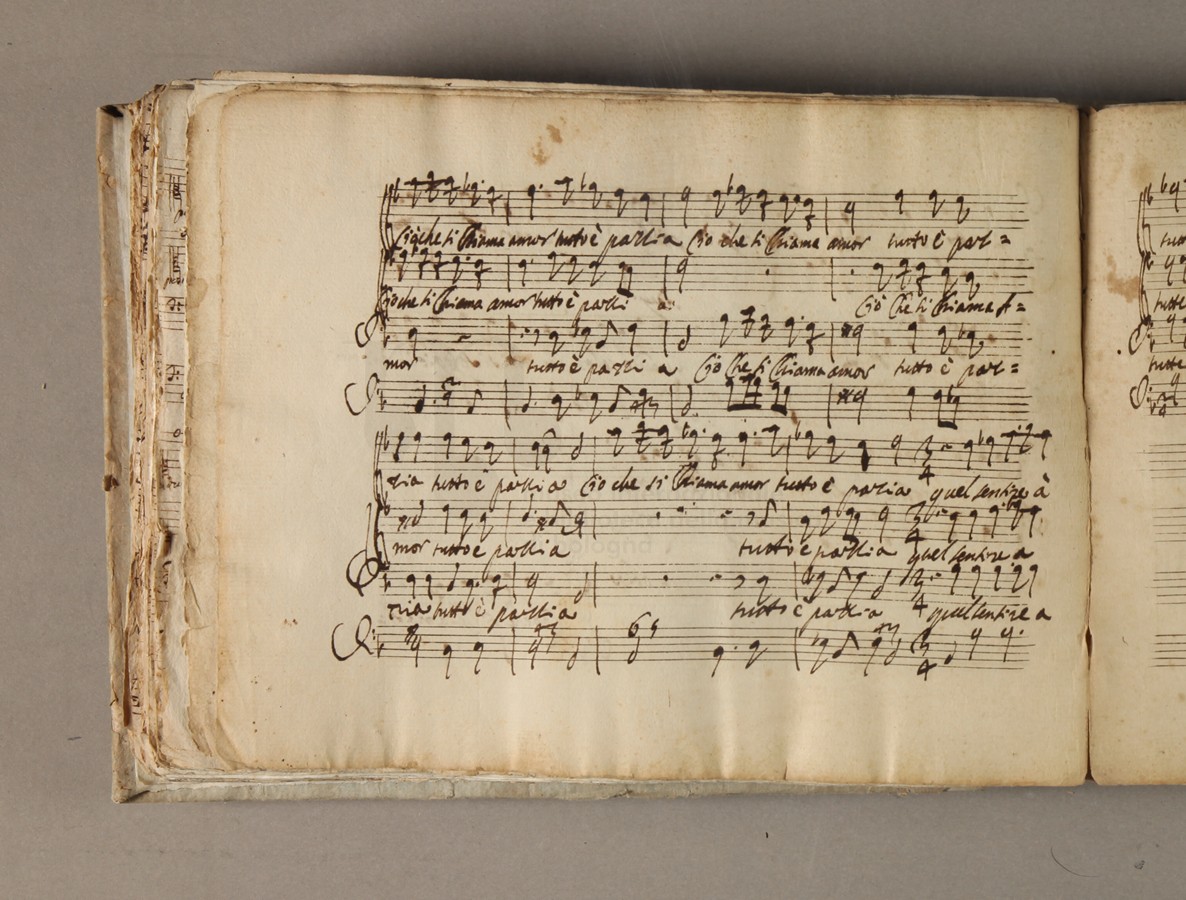 Ciò che si Chiama amor tutto è pazzia Ciò che si Chiama amor tutto è paz=
Ciò che si Chiama amor tutto è pazzi a Ciò Che si Chiama A=
mor tutto è pazzi a Ciò Che si Chiama amor tutto è paz=
zia tutto è pazzia Ciò che si Chiama amor tutto è pazia quel sentire à
mor tutto è pazzia tutto è pazzia quel sentire a
zia tutto è pazzia tutto è pazzia quel sentire a